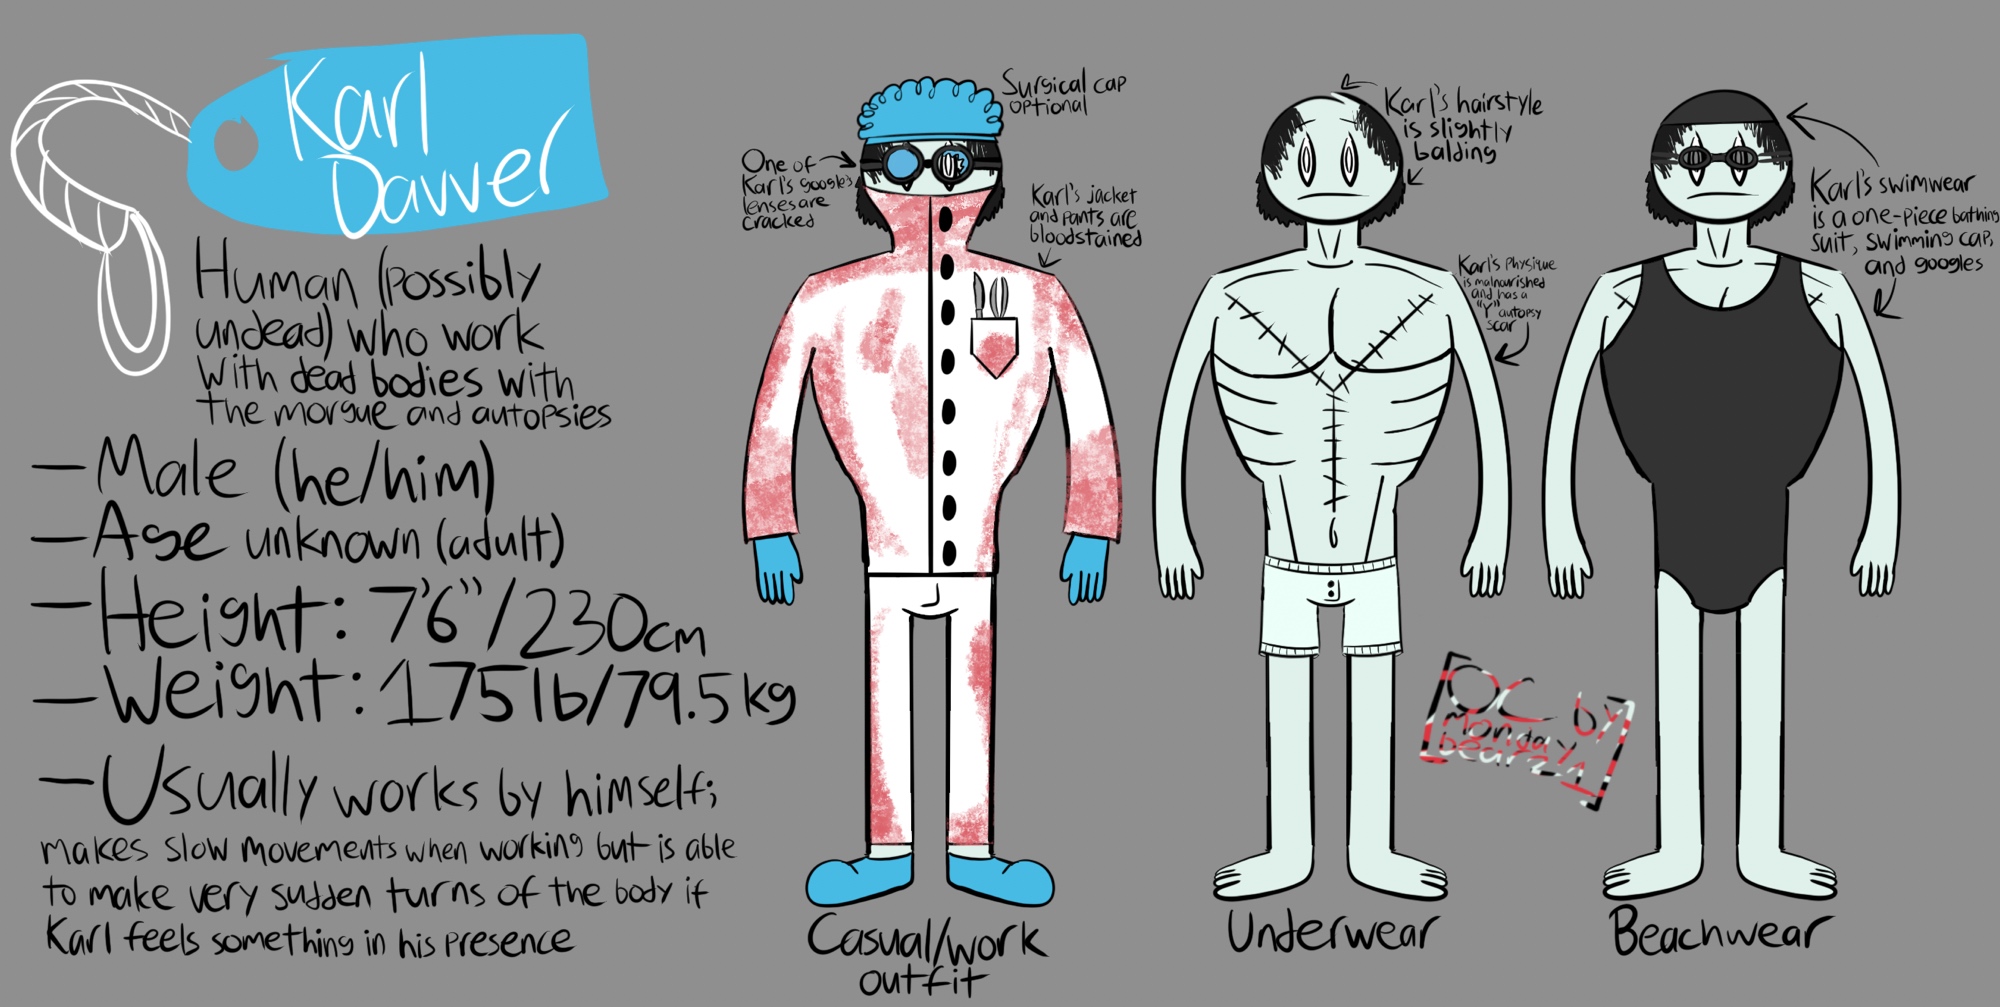 Karl
Davver
Human (possibly
undead) who work
with dead bodies with
the morgue and autopsies
- Male (he/him)
- Age unknown (adult)
- Height: 7'6"/230cm
- Weight: 175lb/79.5kg
- Usually works by himself;
makes slow movements when working but is able
to make very sudden turns of the body if
Karl feels something in his presence
Surgical cap
optional
One of
Karl's googles
lenses are
cracked
Karl's jacket
and pants are
bloodstained
Casual/work
outfit
Karl's hairstyle
is slightly
balding
Karl's physique
is malnourished
and has a
"Y" autopsy
scar
Underwear
Karl's swimwear
is a one-piece bathing
suit, swimming cap,
and googles
Beachwear
OC by
Monday
bear241